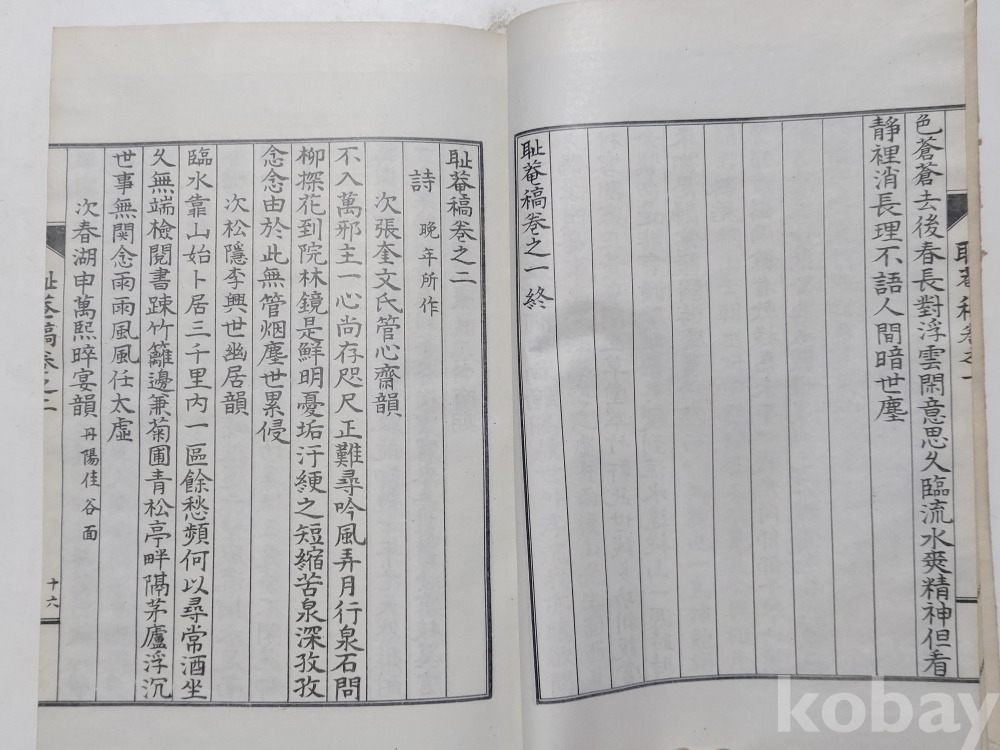 色蒼蒼去後春長對浮雲閑意思久臨流水爽精神但看
靜裡消長理不語人間暗世塵
恥菴稿卷之一終
恥菴稿卷之一
恥菴稿卷之二
詩 晩年所作
次張奎文氏管心齋韻
不入萬邪主一心尚存咫尺正難尋吟風弄月行泉石問
柳探花到院林鏡是鮮明憂垢汙綆之短縮苦泉深孜孜
念念由於此無管烟塵世累侵
次松隱李興世幽居韻
臨水靠山始卜居三千里內一區餘愁頻何以尋常酒坐
久無端檢閱書踈竹籬邊兼菊圃青松亭畔隔茅廬浮沉
世事無関念雨雨風風任太虛
次春湖申萬熙晬宴韻 丹陽佳谷面
恥菴稿卷之二
十六
kobay